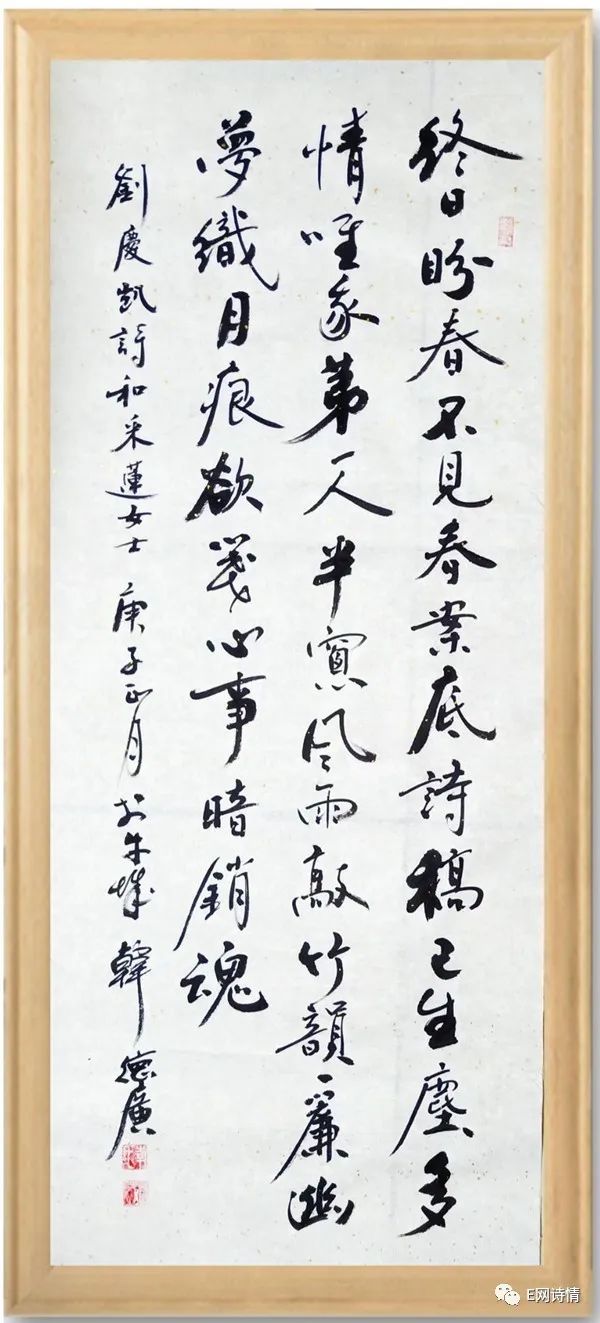 終日盼春不見春案底詩稿已生塵多
情唯我第一人半窗風雨敲竹韻一簾幽
夢織月痕欲箋心事暗銷魂
劉慶凱詩和采蓮女士 庚子正月 於牛城 韓德廣
E网诗情